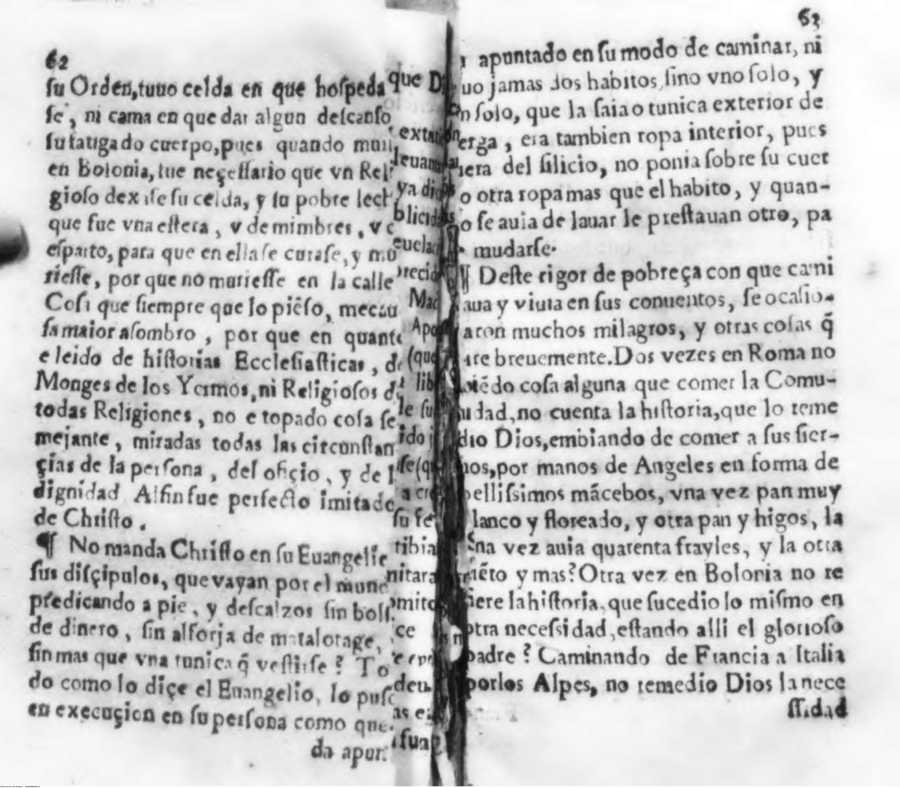 62
su Orden, tuuo celda en que hospeda
se, ni cama en que dar algun descanso
su fatigado cuerpo, pues quando
en Bolonia, fue neçessario que vn Rel
gioso dexasse su celda, y su pobre lech
que fue vna estera, v de mimbres, v
esparto, para que en ella se curase, y mu
riesse, por que no muriesse en la calle
Cosi que siempre que lo piẽso, me
sa maior asombro, por que en quant
e leido de historias Ecclesiasticas, d
Monges de los Yermos, ni Religiosos d
todas Religiones, no e topado cosa se
mejante, miradas todas las circunstan
çias de la persona, del ofiçio, y de l
dignidad. Al fin fue perfecto imitado
de Christo.
¶ No manda Christo en su Euangelie
sus disçipulos, que vayan por el mun
predicando a pie, y descalzos sin bols
de dinero, sin alforja de matalotage,
sin mas que vna tunica q̃ vestirse? To
do como lo diçe el Euangelio, lo pus
en execuçion en su persona como que
da apun
que D
exta
leuan
ya di
blicid
euela
recio
Mad
Apo
(que
lib
le su
ido
se (q
a cre
su fe
tibia
nitara
mito
ce
deu
as e
suap
63
apuntado en su modo de caminar, ni
uo jamas dos habitos, sino vno solo, y
n solo, que la saia o tunica exterior de
erga, era tambien ropa interior, pues
uera del silicio, no ponia sobre su cuer
o otra ropa mas que el habito, y quan-
o se auia de lauar le prestauan otro, pa
mudarse.
¶ Deste rigor de pobreça con que cami
aua y viuia en sus conuentos, se ocasio-
aron muchos milagros, y otras cosas q̃
ire breuemente. Dos vezes en Roma no
iẽdo cosa alguna que comer la Comu-
idad, no cuenta la historia, que lo reme
dio Dios, embiando de comer a sus sier-
uos, por manos de Angeles en forma de
bellissimos mãcebos, vna vez pan muy
lanco y floreado, y otra pan y higos, la
vna vez auia quarenta frayles, y la otra
ciẽto y mas? Otra vez en Bolonia no re
fiere la historia, que sucedio lo mismo en
otra necessidad, estando alli el glorioso
padre? Caminando de Francia a Italia
por los Alpes, no remedio Dios la nece
ssidad